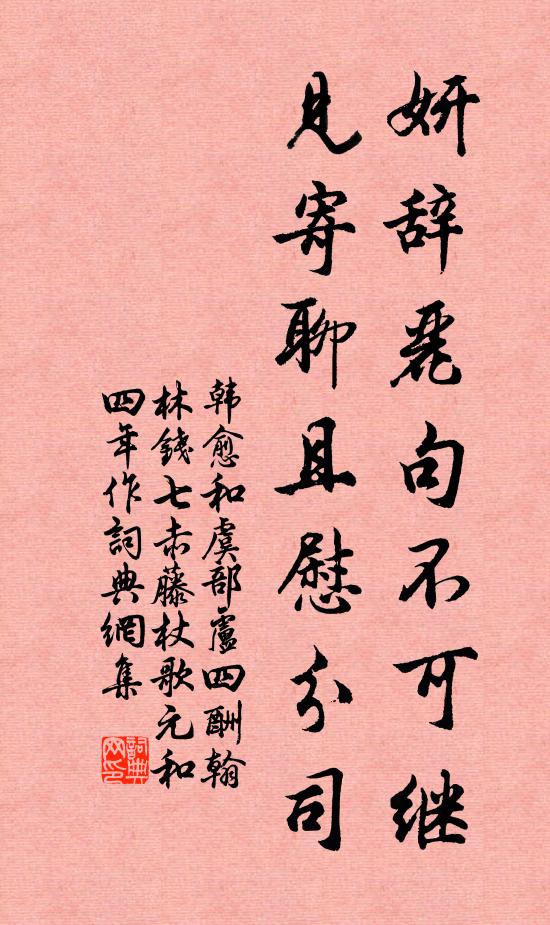 妍辞麗句不可继
见寄聊且慰分司
韩愈和虞部盧四酬翰
林錢七赤藤杖歌元和
四年作詞典網集
詞典
网印